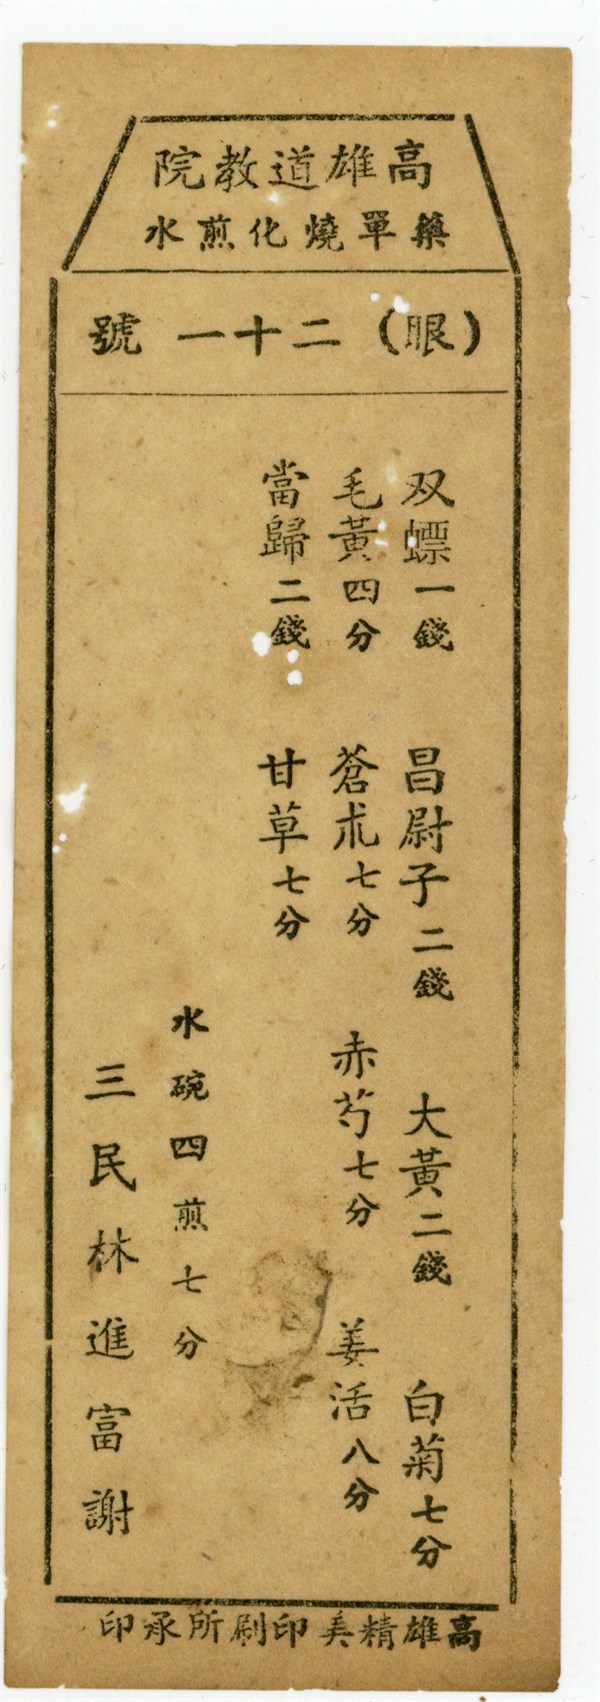 高雄道教院
藥單燒化煎水
（眼）二十一號
双螵一錢 昌尉子二錢 大黃二錢 白菊七分
毛黃四分 蒼朮七分 赤芍七分 姜活八分
當歸二錢 甘草七分
水碗四煎七分
三民林進富謝
高雄精美印刷所承印